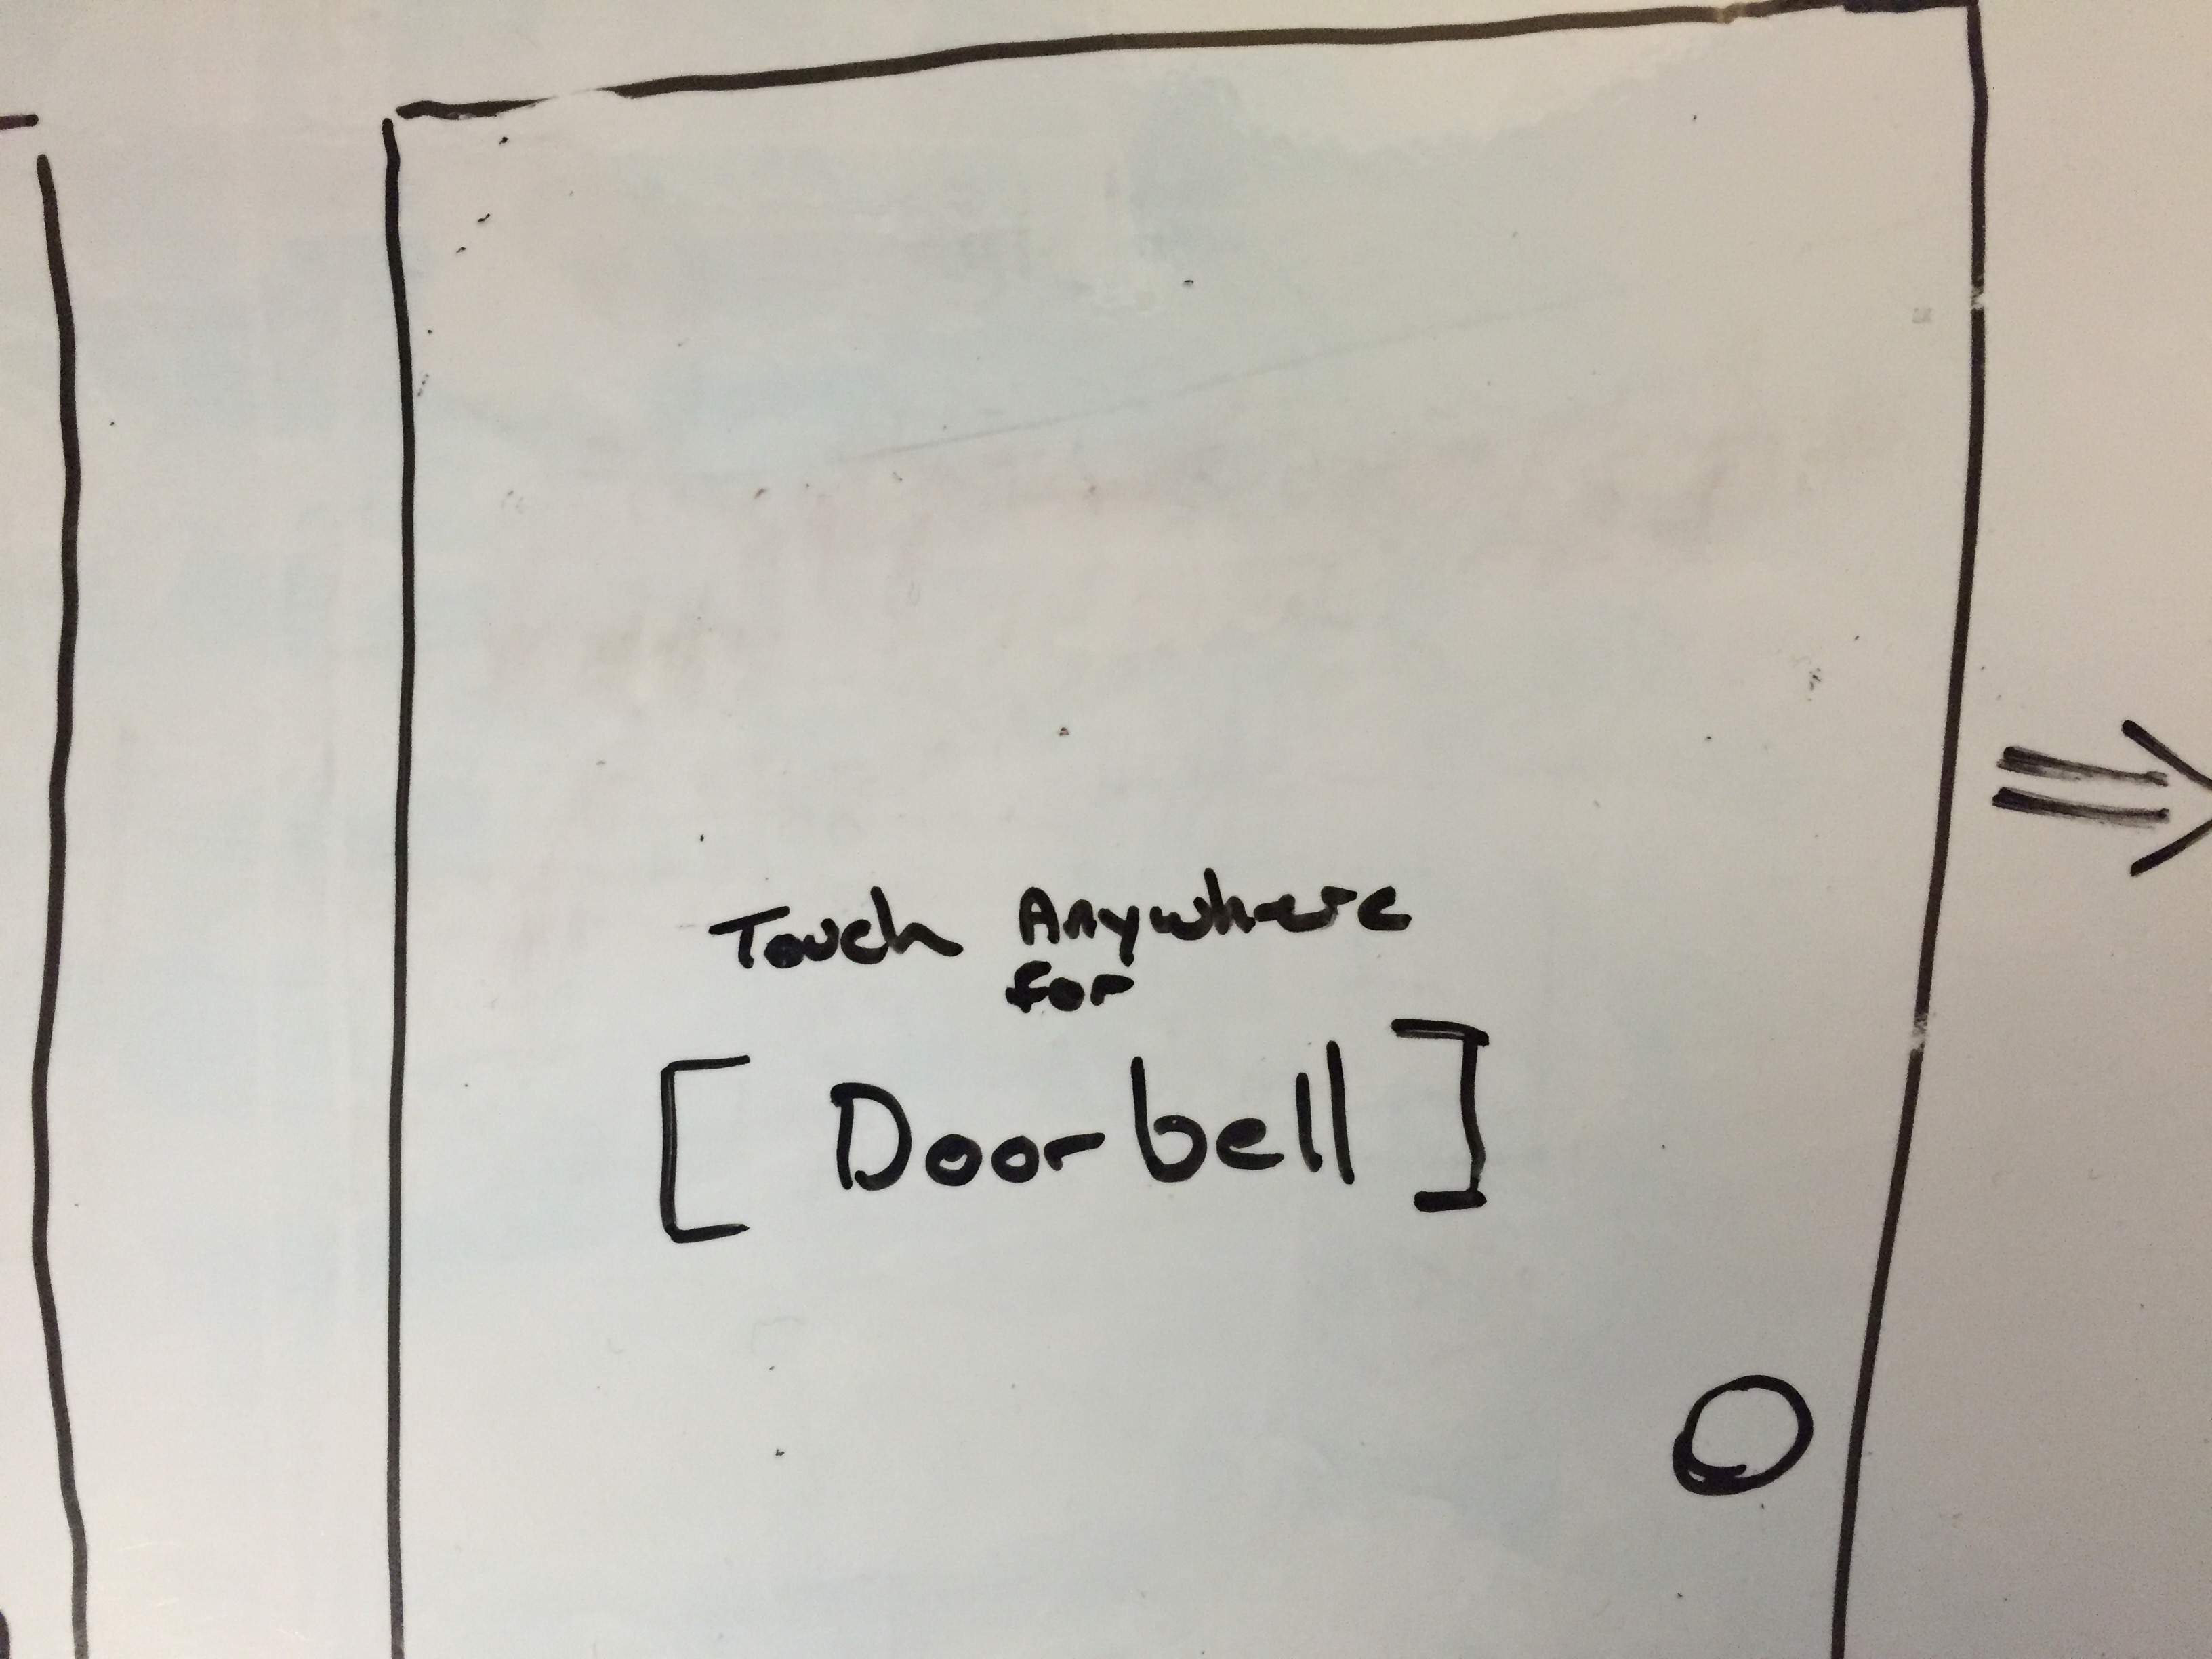 Touch Anywhere
for
[ Doorbell ]